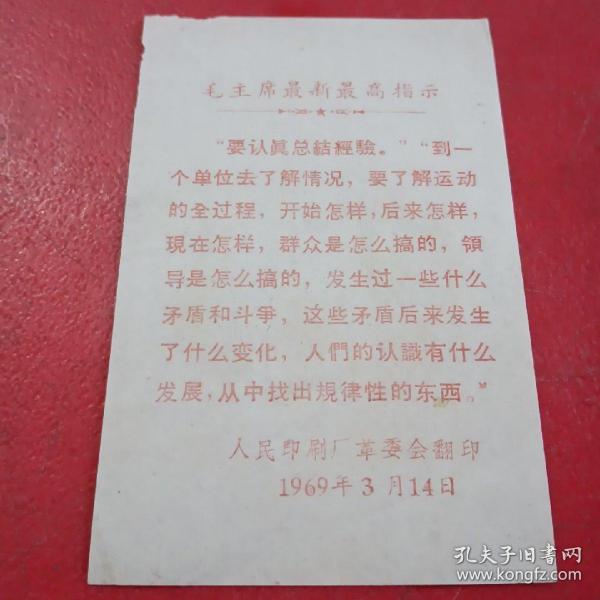 毛主席最新最高指示
“要认眞总結經驗。”“到一
个单位去了解情况，要了解运动
的全过程，开始怎样，后来怎样，
現在怎样，群众是怎么搞的，領
导是怎么搞的，发生过一些什么
矛盾和斗爭，这些矛盾后来发生
了什么变化，人們的认識有什么
发展，从中找出規律性的东西。”
人民印刷厂革委会翻印
1969年3月14日
孔夫子旧書网
www.kongfz.com